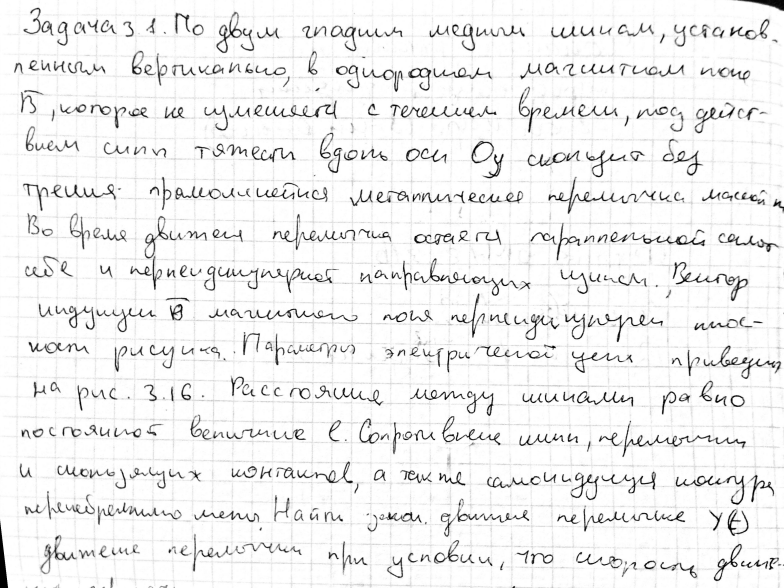 Задача 3 1. По двум гладким медным шинам, установ-
ленным вертикально, в однородном магнитном поле
B, которое не изменяется с течением времени, под дейст-
вием силы тяжести вдоль оси Oy скользит без
трения прямолинейная металлическая перемычка массой m
Во время движения перемычка остаётся параллельной самой
себе и перпендикулярной направляющих шинам. Вектор
индукции B магнитного поля перпендикулярен плос-
кости рисунка. Параметры электрической цепи приведены
на рис. 3.16. Расстояние между шинами равно
постоянной величине l. Сопротивление шин, перемычки
и скользящих контактов, а также самоиндукция контура
пренебрежимо малы. Найти закон движения перемычки y(t)
движение перемычки при условии, что скорость движе